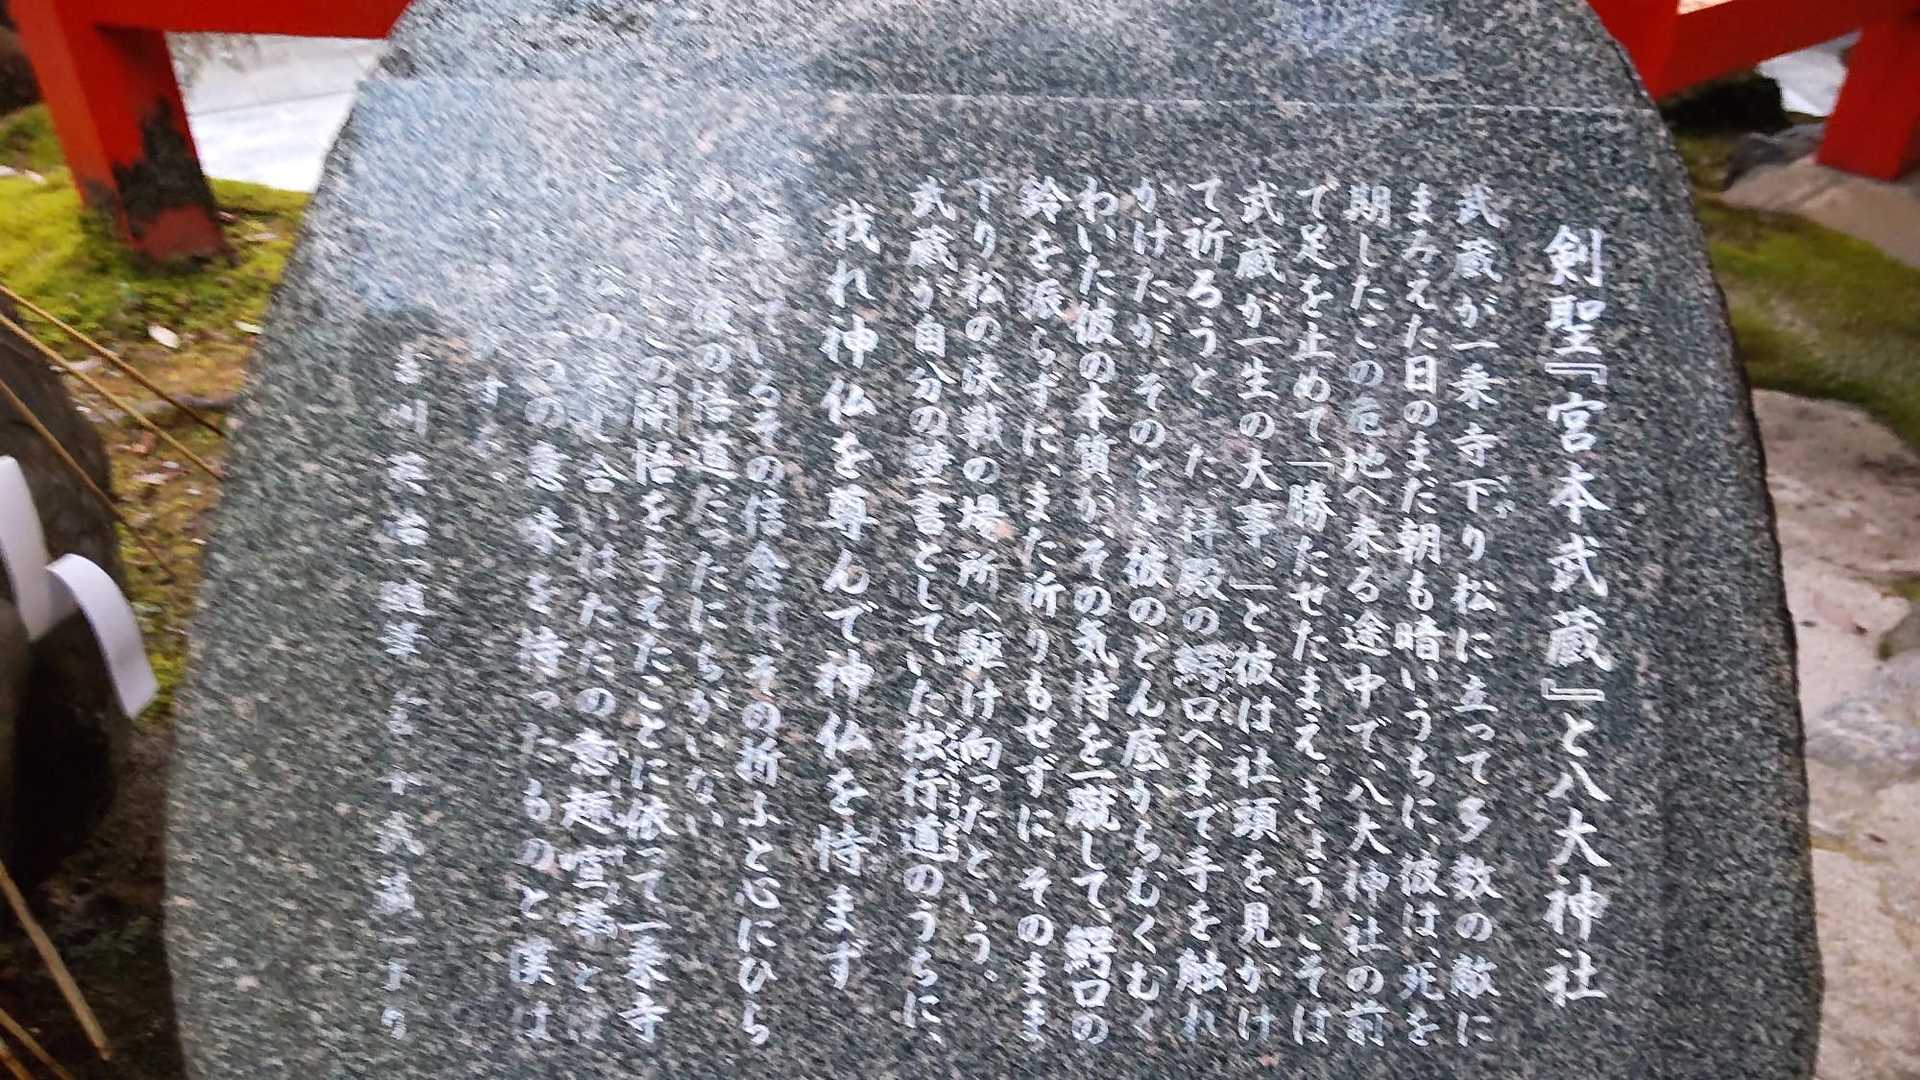 剣聖『宮本武蔵』と八大神社
武蔵が一乗寺下り松に立って多数の敵に
まみえた日のまだ朝も暗いうちに、彼は、死を
期したこの危地へ来る途中で、八大神社の前
で足を止めて、「勝たせたまえ。きょうこそは
武蔵が一生の大事。」と彼は社頭を見かけ
て祈ろうとした。拝殿の鰐口へまで手を触れ
かけたが、そのとき彼のどん底からむくむく
わいた彼の本質が、その気持を一蹴して、鰐口の
鈴を振らずに、また祈りもせずに、そのまま
下り松の決戦の場所へ駆け向ったという。
武蔵が自分の壁書としていた独行道のうちに、
我れ神仏を尊んで神仏を恃まず
と書いているその信念は、その折ふと心にひら
めいた彼の悟道だったにちがいない。
武蔵にこの開悟を与えたことに依って一乗寺
の果し合いはただの意趣喧嘩とは
の意味を持ったものと僕は
する。
吉川英治「随筆 宮本武蔵」より